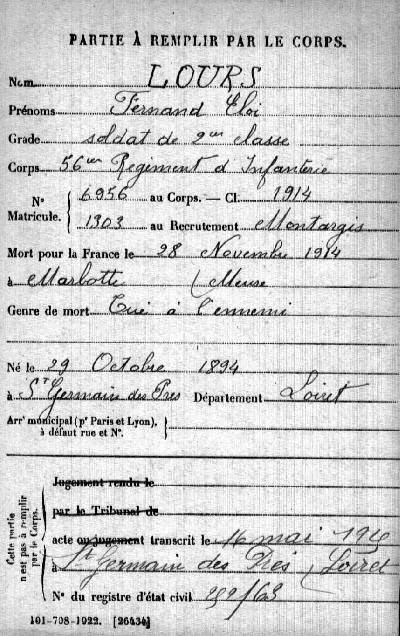 PARTIE À REMPLIR PAR LE CORPS.
Nom LOURS
Prénoms Fernand Eloi
Grade soldat de 2me classe
Corps 56me Regiment d Infanterie
N° Matricule. { 6956 au Corps. — Cl. 1914
1303 au Recrutement Montargis
Mort pour la France le 28 Novembre 1914
à Marbotte (Meuse
Genre de mort Tué à l'ennemi
Né le 29 Octobre 1894
à St Germain des Prés Département Loiret
Arrt municipal (pr Paris et Lyon), à défaut rue et N°. }
Cette partie n'est pas à remplir par le Corps. {
Jugement rendu le
par le Tribunal de
acte ou jugement transcrit le mai
à St Germain des Prés (Loiret
N° du registre d'état civil
101-708-1922. [26434]